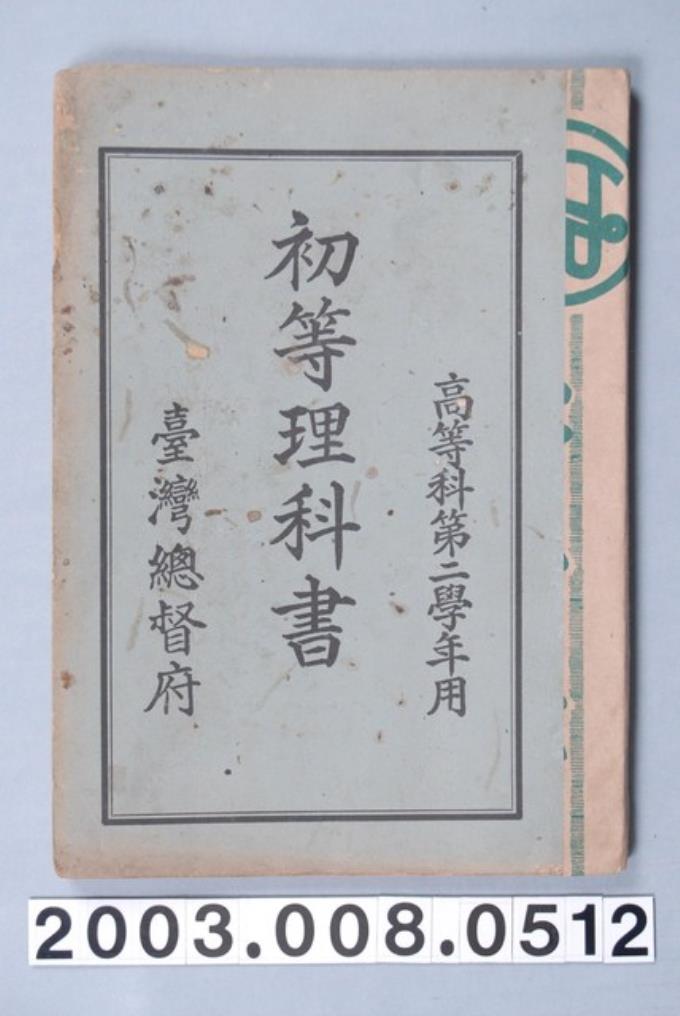 高等科第二學年用
初等理科書
臺灣總督府
2003.008.0512